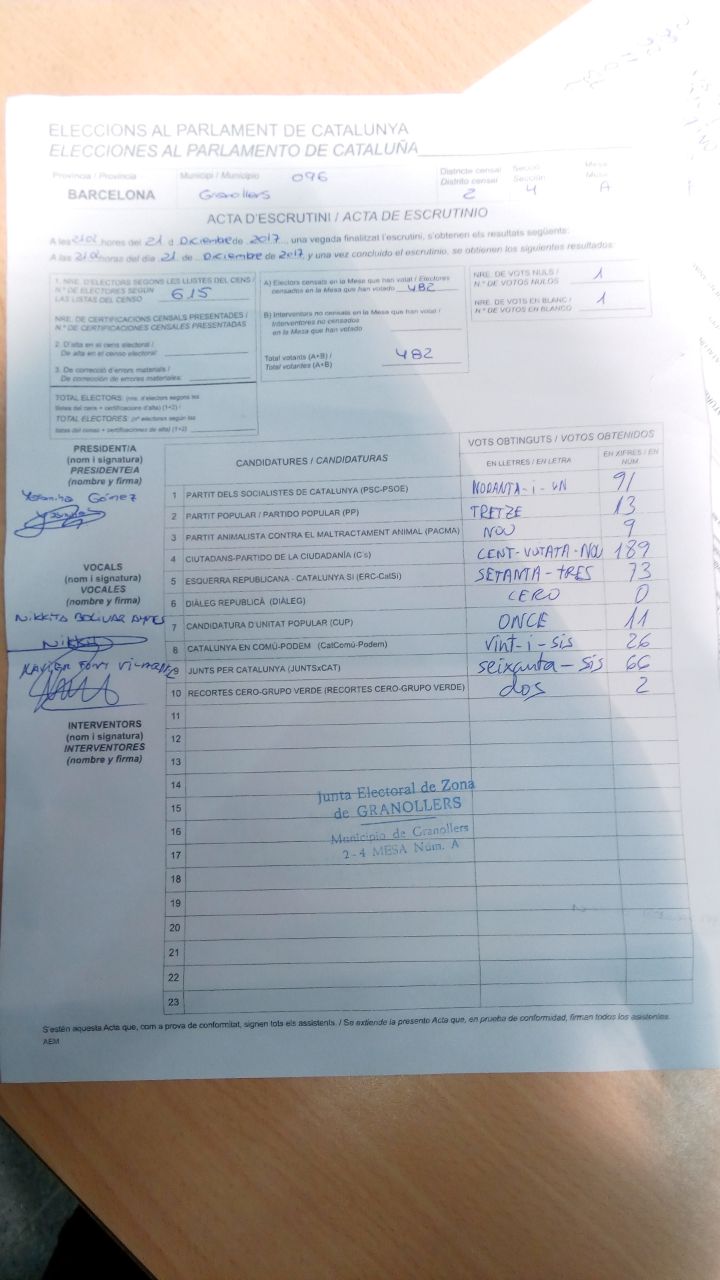 ELECCIONS AL PARLAMENT DE CATALUNYA
ELECCIONES AL PARLAMENTO DE CATALUÑA
Província / Provincia
BARCELONA
Municipi / Municipio 096
Granollers
Districte censal
Distrito censal
2
Secció
Sección
4
Mesa
Mesa
A
ACTA D'ESCRUTINI / ACTA DE ESCRUTINIO
A les 21:01 hores del 21 d Diciembre de 2017, una vegada finalitzat l'escrutini, s'obtenen els resultats següents:
A las 21:01 horas del día 21 de Diciembre de 2017, y una vez concluido el escrutinio, se obtienen los siguientes resultados:
1. NRE. D'ELECTORS SEGONS LES LLISTES DEL CENS /
N.º DE ELECTORES SEGÚN
LAS LISTAS DEL CENSO 615
NRE. DE CERTIFICACIONS CENSALS PRESENTADES /
N.º DE CERTIFICACIONES CENSALES PRESENTADAS
2. D'alta en el cens electoral /
De alta en el censo electoral:
3. De correcció d'errors materials /
De corrección de errores materiales:
TOTAL ELECTORS: (nre. d'electors segons les
llistes del cens + certificacions d'alta) (1+2) /
TOTAL ELECTORES: (nº electores según las
listas del censo + certificaciones de alta) (1+2)
A) Electors censats en la Mesa que han votat / Electores
censados en la Mesa que han votado 482
B) Interventors no censats en la Mesa que han votat /
Interventores no censados
en la Mesa que han votado
Total votants (A+B) /
Total votantes (A+B) 482
NRE. DE VOTS NULS /
N.º DE VOTOS NULOS 1
NRE. DE VOTS EN BLANC /
N.º DE VOTOS EN BLANCO 1
PRESIDENT/A
(nom i signatura)
PRESIDENTE/A
(nombre y firma)
Gómez
VOCALS
(nom i signatura)
VOCALES
(nombre y firma)
NIKKITA BOLIVAR
Nikkita
XAVIER FONT
INTERVENTORS
(nom i signatura)
INTERVENTORES
(nombre y firma)
CANDIDATURES / CANDIDATURAS
VOTS OBTINGUTS / VOTOS OBTENIDOS
EN LLETRES / EN LETRA
EN XIFRES / EN NÚM
1 PARTIT DELS SOCIALISTES DE CATALUNYA (PSC-PSOE) NORANTA-i-UN 91
2 PARTIT POPULAR / PARTIDO POPULAR (PP) TRETZE 13
3 PARTIT ANIMALISTA CONTRA EL MALTRACTAMENT ANIMAL (PACMA) NOU 9
4 CIUTADANS-PARTIDO DE LA CIUDADANÍA (C's) CENT-VUTATA-NOU 189
5 ESQUERRA REPUBLICANA - CATALUNYA SÍ (ERC-CatSí) SETANTA-TRES 73
6 DIÀLEG REPUBLICÀ (DIÀLEG) CERO 0
7 CANDIDATURA D'UNITAT POPULAR (CUP) ONCE 11
8 CATALUNYA EN COMÚ-PODEM (CatComú-Podem) Vint-i-sis 26
9 JUNTS PER CATALUNYA (JUNTSxCAT) seixanta-sis 66
10 RECORTES CERO-GRUPO VERDE (RECORTES CERO-GRUPO VERDE) dos 2
11
12
13
14
15
16
17
18
19
20
21
22
23
Junta Electoral de Zona
de GRANOLLERS
Municipio de Granollers
2-4 MESA Núm. A
S'estén aquesta Acta que, com a prova de conformitat, signen tots els assistents. / Se extiende la presente Acta que, en prueba de conformidad, firman todos los asistentes.
AEM